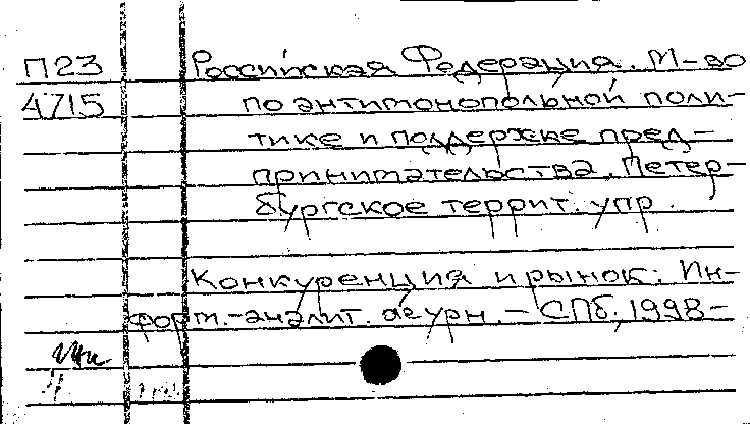 П23
4715
Российская Федерация. М-во
по антимонопольной поли-
тике и поддержке пред-
принимательства. Петер-
бургское террит. упр.
Конкуренция и рынок: Ин-
форм.-аналит. журн. – СПб, 1998–